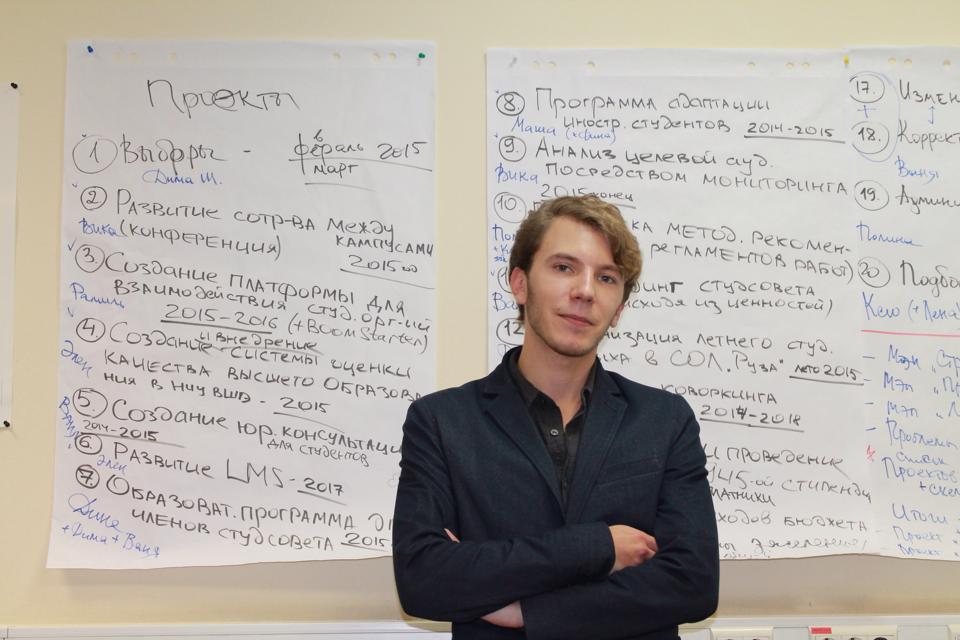 Проекты
① Выборы - в февраль 2015
март
Дима Ш.
② Развитие сотр-ва между
кампусами
Вика (конференция)
2015
③ Создание платформы для
взаимодействия студ. орг-ий
2015-2016 (+BoomStarter)
④ Создание и внедрение системы оценки
Элен
качества высшего образова
ния в НИУ ВШЭ - 2015
⑤ Создание юр. консультаци
для студентов
2014-2015
Ваня
⑥ Развитие LMS - 2017
Элен
⑦ Образоват. программа д
членов студсовета 2015
Дина
+ Дима + Ваня
⑧ Программа адаптации
иностр. студентов 2014-2015
Маша
⑨ Анализ целевой ауд.
Вика посредством мониторинга
2015 конец
⑩
ка метод. рекомен-
регламентов работ)
инг студсовета
исходя из ценностей)
⑫
изация летнего студ.
ика в СОЛ "Руза" лето 2015
коворкинга
2017-2018
и проведение
145-ой стипенди
платники
ходов бюджета
⑰ Измен
+
⑱ Коррект
Ваня
⑲ Админи
Полина
⑳ Подбо
Ксю (+Лена
Проблемы
список
Проектов
Итоги
Проект
Проект